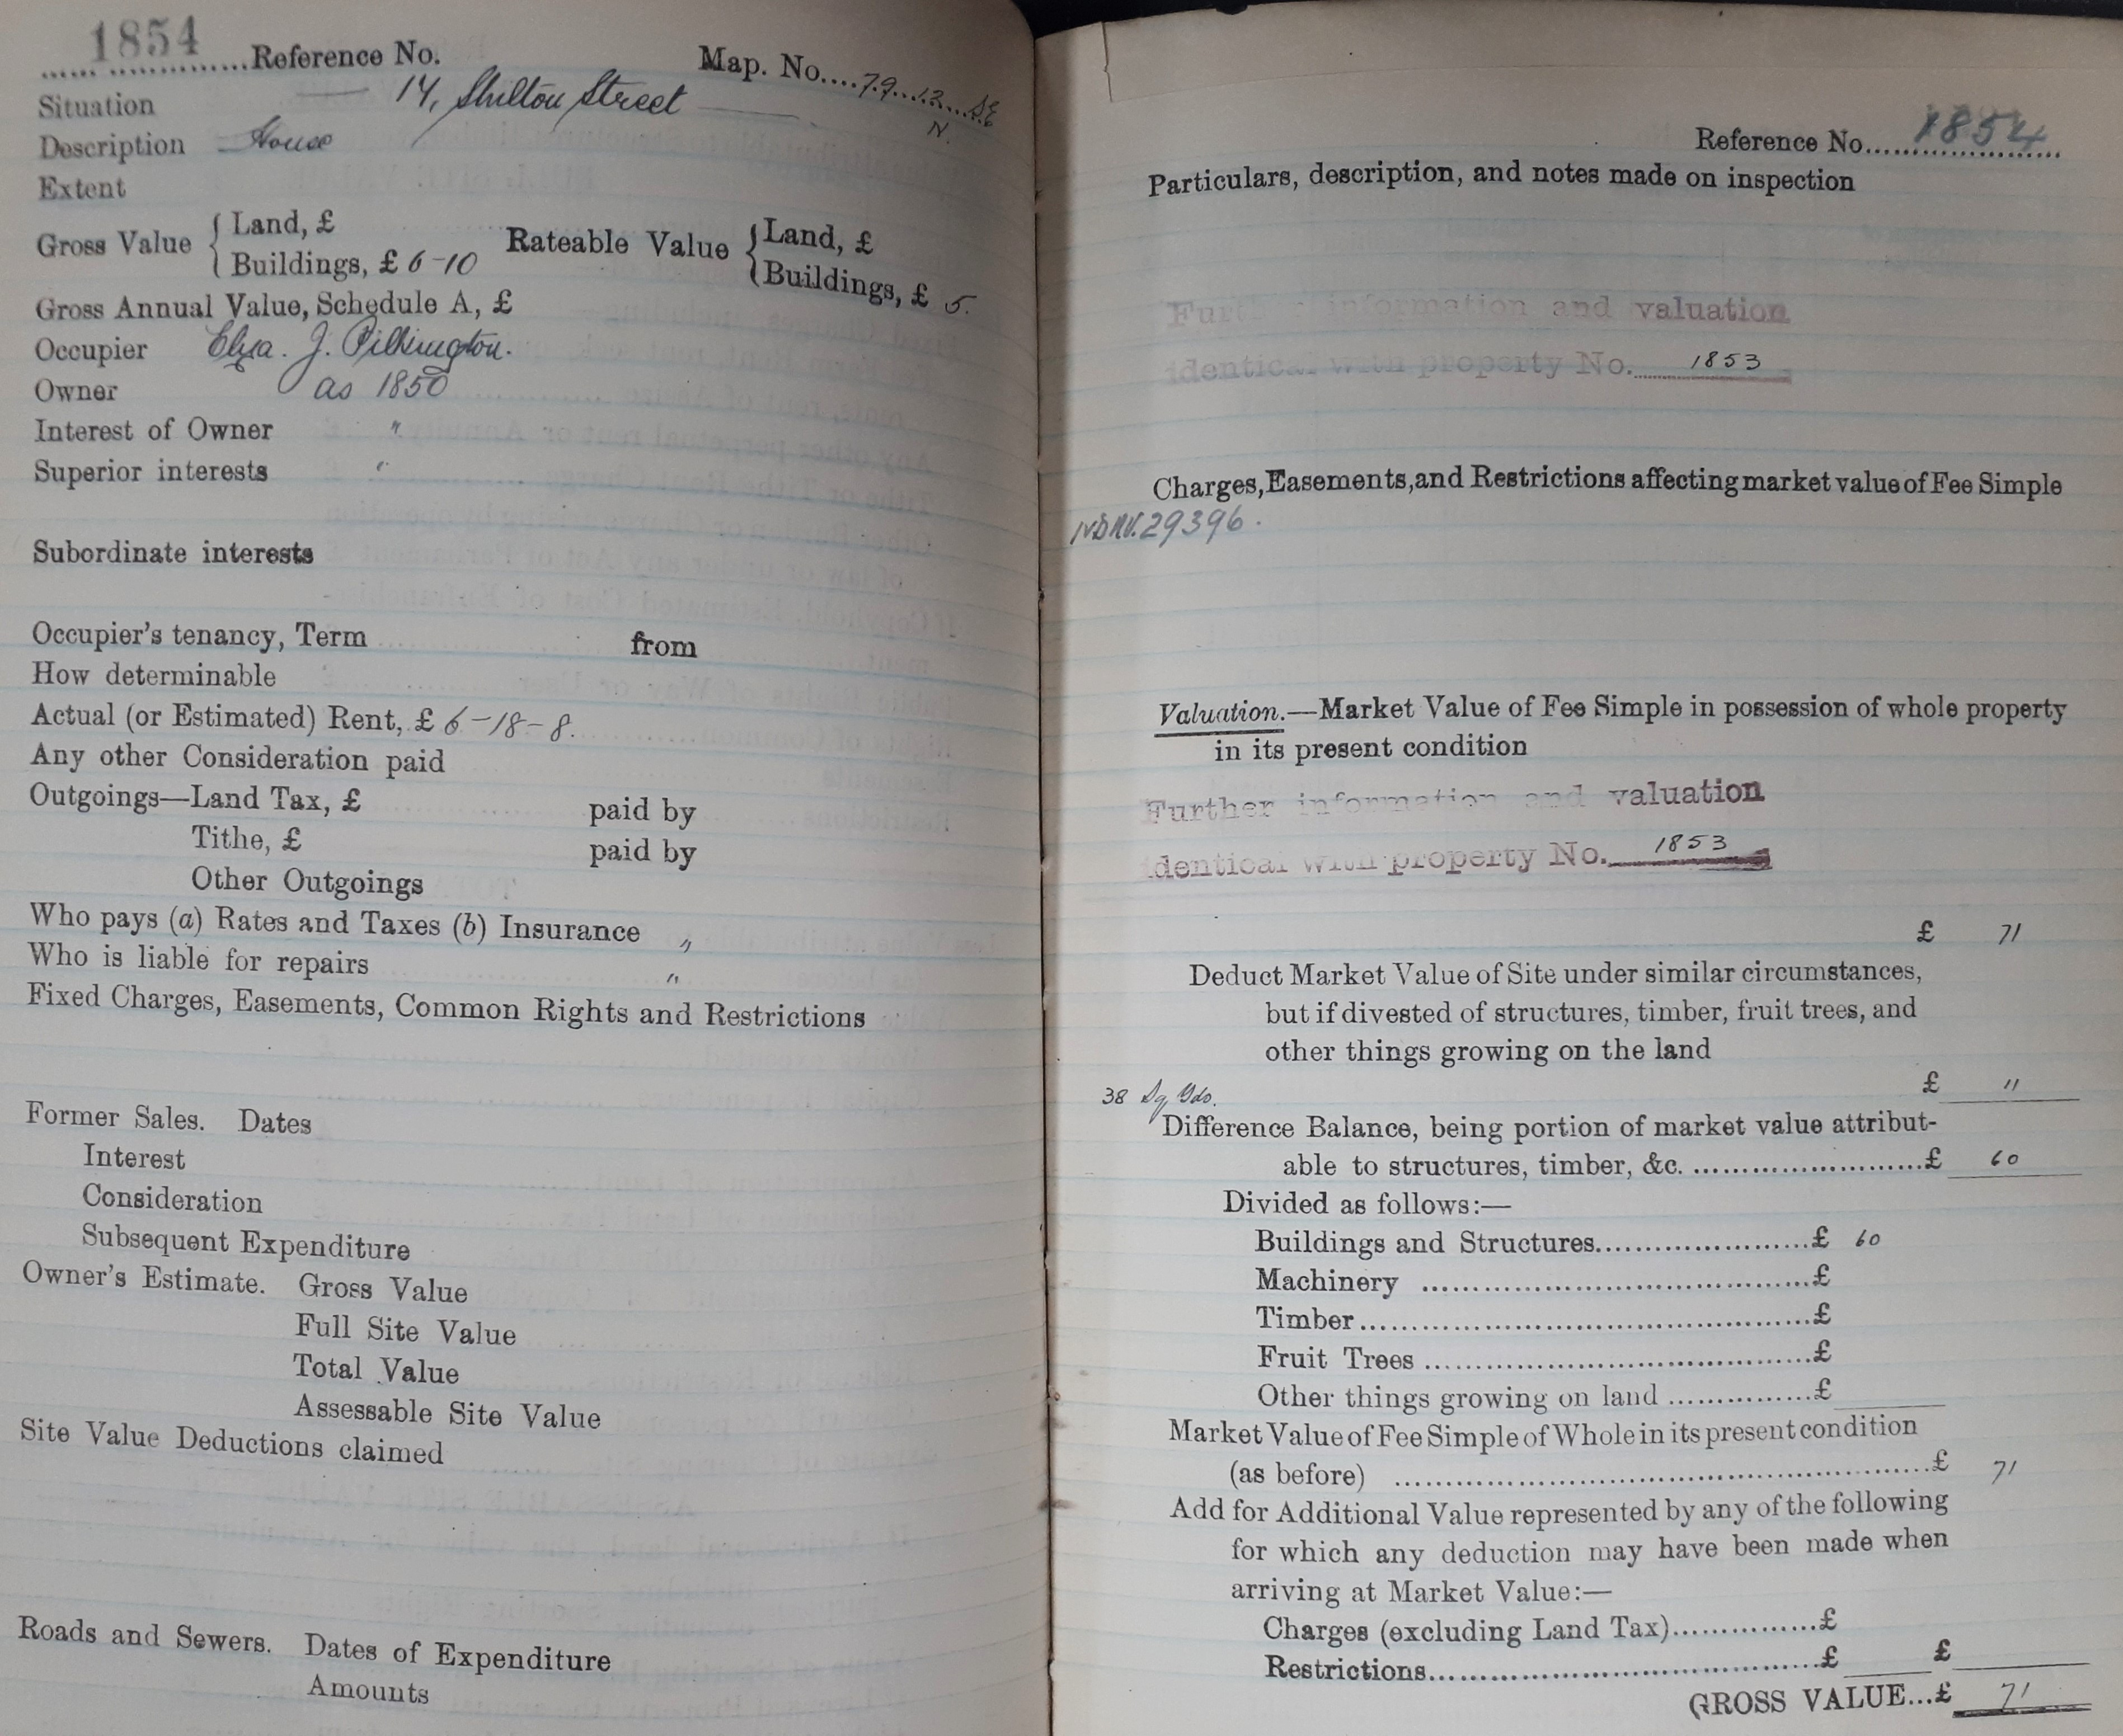 1854 Reference No. Map. No. 79 12 SE
N.
Situation 14, Shilton Street
Description House
Extent
Gross Value { Land, £
Buildings, £ 6-10
Rateable Value { Land, £
Buildings, £ 5.
Gross Annual Value, Schedule A, £
Occupier Eliza. J. Pilkington.
Owner as 1850
Interest of Owner "
Superior interests "
Subordinate interests
Occupier's tenancy, Term from
How determinable
Actual (or Estimated) Rent, £ 6-18-8.
Any other Consideration paid
Outgoings—Land Tax, £ paid by
Tithe, £ paid by
Other Outgoings
Who pays (a) Rates and Taxes (b) Insurance "
Who is liable for repairs "
Fixed Charges, Easements, Common Rights and Restrictions
Former Sales. Dates
Interest
Consideration
Subsequent Expenditure
Owner's Estimate. Gross Value
Full Site Value
Total Value
Assessable Site Value
Site Value Deductions claimed
Roads and Sewers. Dates of Expenditure
Amounts
Reference No. 1854
Particulars, description, and notes made on inspection
Further information and valuation
identical with property No. 1853
Charges, Easements, and Restrictions affecting market value of Fee Simple
29396.
Valuation.—Market Value of Fee Simple in possession of whole property
in its present condition
Further information and valuation
identical with property No. 1853
£ 71
Deduct Market Value of Site under similar circumstances,
but if divested of structures, timber, fruit trees, and
other things growing on the land
38 Sq Yds. £ 11
Difference Balance, being portion of market value attribut-
able to structures, timber, &c. £ 60
Divided as follows:—
Buildings and Structures £ 60
Machinery £
Timber £
Fruit Trees £
Other things growing on land £
Market Value of Fee Simple of Whole in its present condition
(as before) £ 71
Add for Additional Value represented by any of the following
for which any deduction may have been made when
arriving at Market Value:—
Charges (excluding Land Tax) £
Restrictions £ £
GROSS VALUE...£ 71